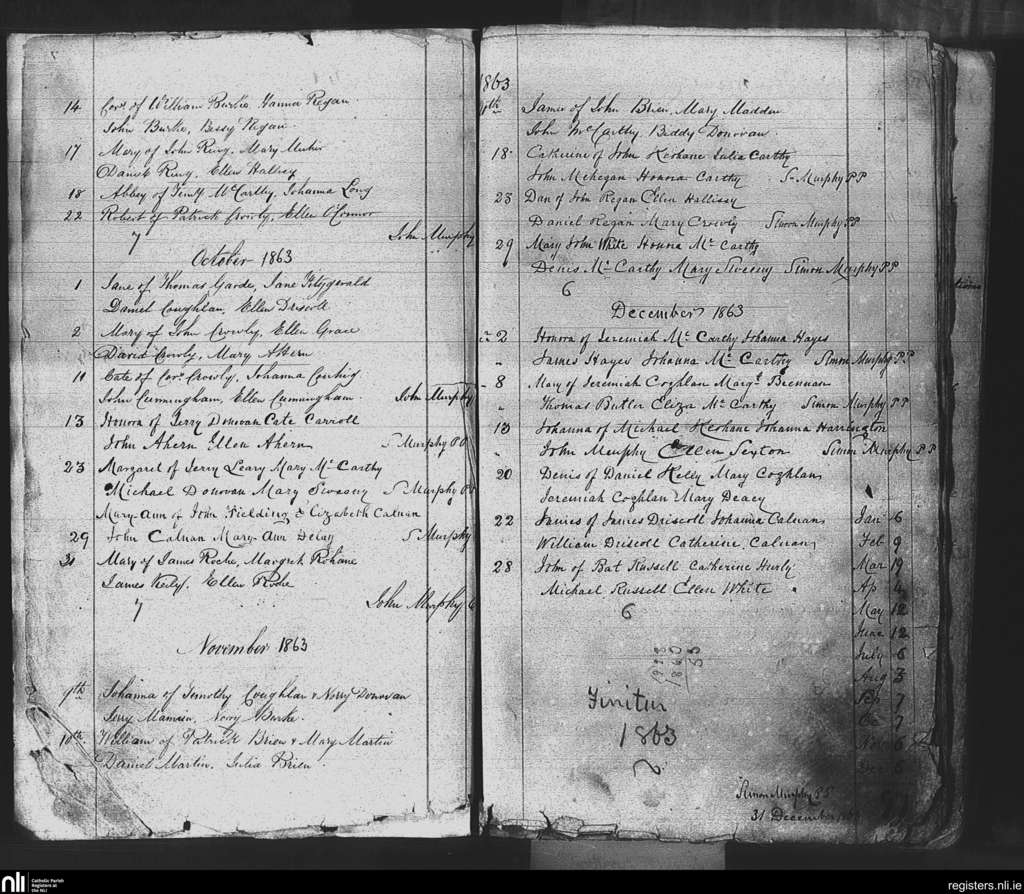 14 Corn. of William Burke, Hanna Regan
John Burke, Bessy Regan
17 Mary of John Ring, Mary
Daniel Ring, Ellen Hallisey
18 Abbey of Timy McCarthy, Johanna Long
22 Robert of Patrick Crowly, Ellen O'Connor
7 John Murphy
October 1863
1 Jane of Thomas Garde, Jane Fitzgerald
Daniel Coughlan, Ellen Driscoll
2 Mary of John Crowly, Ellen Grace
David Crowly, Mary Ahern
11 Cate of Cors. Crowly, Johanna
John Cunningham, Ellen Cunningham John Murphy
13 Honora of Jerry Donovan Cate Carroll
John Ahern Ellen Ahern S Murphy PP
23 Margaret of Jerry Leary Mary Mc Carthy
Michael Donovan Mary Sweeny S Murphy PP
Mary-Ann of John Fielding & Elizabeth Calnan
29 John Calnan Mary-Ann Delay S Murphy
31 Mary of James Roche, Margret Kohane
James Ellen Roche
7 John Murphy
November 1863
9th Johanna of Timothy Coughlan & Norry Donovan
Jerry Norry Burke
10th William of Patrick Brien & Mary Martin
Daniel Martin, Julia Brien
1863
11th James of John Brien, Mary Madden
John McCarthy, Biddy Donovan
18 Catherine of John Keohane Julia Carthy
John Mehegan Honora Carthy S- Murphy PP
23 Dan of John Regan Ellen Hallissy
Daniel Regan Mary Crowly Simon Murphy PP
29 Mary John White Honora Mc Carthy
Denis Mc Carthy Mary Sweeny Simon Murphy PP
6
December 1863
2 Honora of Jeremiah Mc Carthy Johanna Hayes
James Hayes Johanna Mc Carthy Simon Murphy PP
8 Mary of Jeremiah Coghlan Margt. Brennan
Thomas Butler Eliza Mc Carthy Simon Murphy PP
13 Johanna of Michael Keohane Johanna Harrington
John Murphy Ellen Sexton Simon Murphy PP
20 Denis of Daniel Kelly Mary Coghlan
Jeremiah Coghlan Mary Deacy
22 James of James Driscoll Johanna Calnan Jan 6
William Driscoll Catherine Calnan Feb 9
28 John of Bat Russell Catherine Hurly Mar 19
Michael Russell Ellen White Ap 4
6 May 12
June 12
July 6
Aug 3
Finitur Sep 7
Oc 7
1863 Nov 6
Dec 6
Simon Murphy PP
31 December
nli Catholic Parish Registers at the NLI
registers.nli.ie